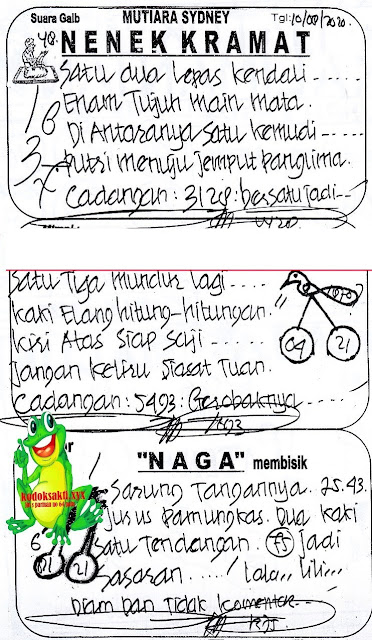 Suara Gaib MUTIARA SYDNEY Tgl: 10/08/2020.
48. NENEK KRAMAT
Satu dua lepas kendali
Enam Tujuh main mata.
Di Antaranya satu kemudi
Putri menuju jemput Panglima.
Cadangan: 3128: bersatu jadi
1 6
3
7
Satu Tiga mundur lagi
kaki Elang hitung-hitungan.
kiri Atas siap saji
Jangan keliru siasat Tuan.
Cadangan: 5493: Gerobaknya
04 21
"NAGA" membisik
Sarung Tangannya. 25.43.
Jurus Pamungkas. Dua kaki
Satu Tendangan. 75 Jadi
Sasaran..... Lala,, Lili,,
Diam Dan Tidak komentar
6
01 21
kodoksakti.xyz